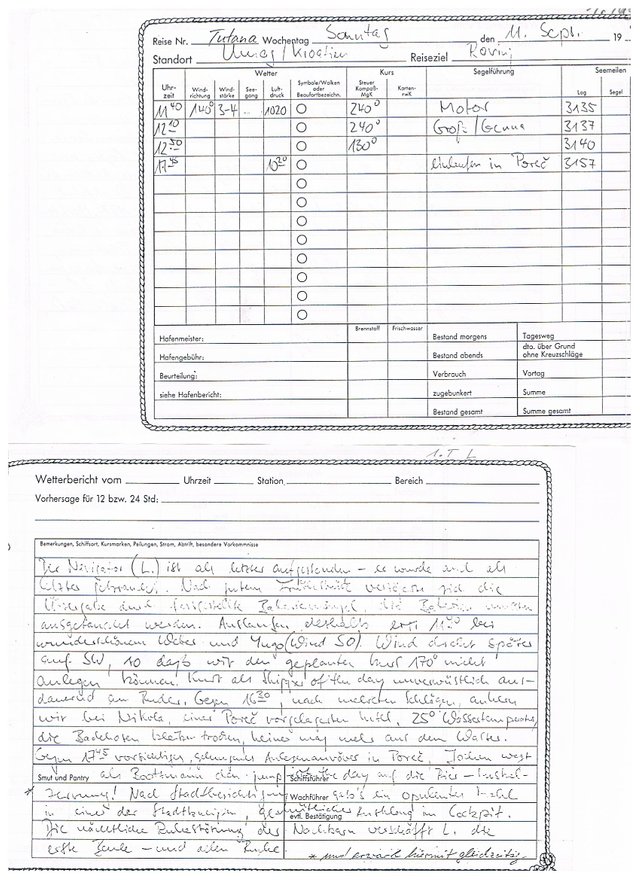 Reise Nr. Tutana Wochentag Sonntag den 11. Sept. 19
Standort Umag/Kroatien Reiseziel Rovinj
Wetter Kurs Segelführung Seemeilen
Uhrzeit Windrichtung Windstärke Seegang Luftdruck Symbole/Wolken oder Beaufortbezeichn. Steuer Kompaß-MgK Karten-rwK Log Segel
11 40 140° 3-4 1020 240° Motor 3135
12 10 240° Groß/Genua 3137
12 30 130° 3140
17 45 1020 Einlaufen in Poreč 3157
Brennstoff Frischwasser
Hafenmeister: Bestand morgens Tagesweg
Hafengebühr: Bestand abends dto. über Grund ohne Kreuzschläge
Beurteilung: Verbrauch Vortag
siehe Hafenbericht: zugebunkert Summe
Bestand gesamt Summe gesamt
1. T L
Wetterbericht vom Uhrzeit Station Bereich
Vorhersage für 12 bzw. 24 Std:
Bemerkungen, Schiffsort, Kursmarken, Peilungen, Strom, Abtrift, besondere Vorkommnisse
Der Navigator (L.) ist als letzter aufgestanden - er wurde auch als
letzter . Nach gutem Frühstück verzögerte sich die
Übergabe durch festgestellte , die Batterien mussten
ausgetauscht werden. Auslaufen deshalb erst 11 40 bei
wunderschönem Wetter und Yugo (Wind SO). Wind dreht später
auf SW, so daß wir den geplanten Kurs 170° nicht
anlegen können. Kurst als Skipper of the day unverwüstlich aus-
dauernd am Ruder. Gegen 16 30, nach mehreren Schlägen, ankern
wir bei Nikola, einer Poreč vorgelagerten Insel. 25° Wassertemperatur,
die Badehosen bleiben trocken, keiner mag mehr aus dem Wasser.
Gegen 17 45 vorsichtiges, gelungenes Anlegemanöver in Poreč, Jochen wagt
Smut und Pantry als Bootsmann den Schiffsführer day auf die Pier -
! Nach Stadtbesichtigung Wachführer gab's ein opulentes Mahl
in einer der , gemütlicher evtl. Bestätigung Ausklang im Cockpit.
Die nächtliche Ruhestörung des Nachbarn verschafft L. die
erste Beule - und allen Ruhe
* und erwarb hiermit gleichzeitig